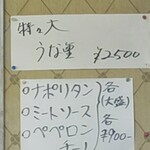 特々大
うな重 ¥2500
○ナポリタン 各
○ミートソース (大盛) 各
○ペペロンチーノ ¥900-